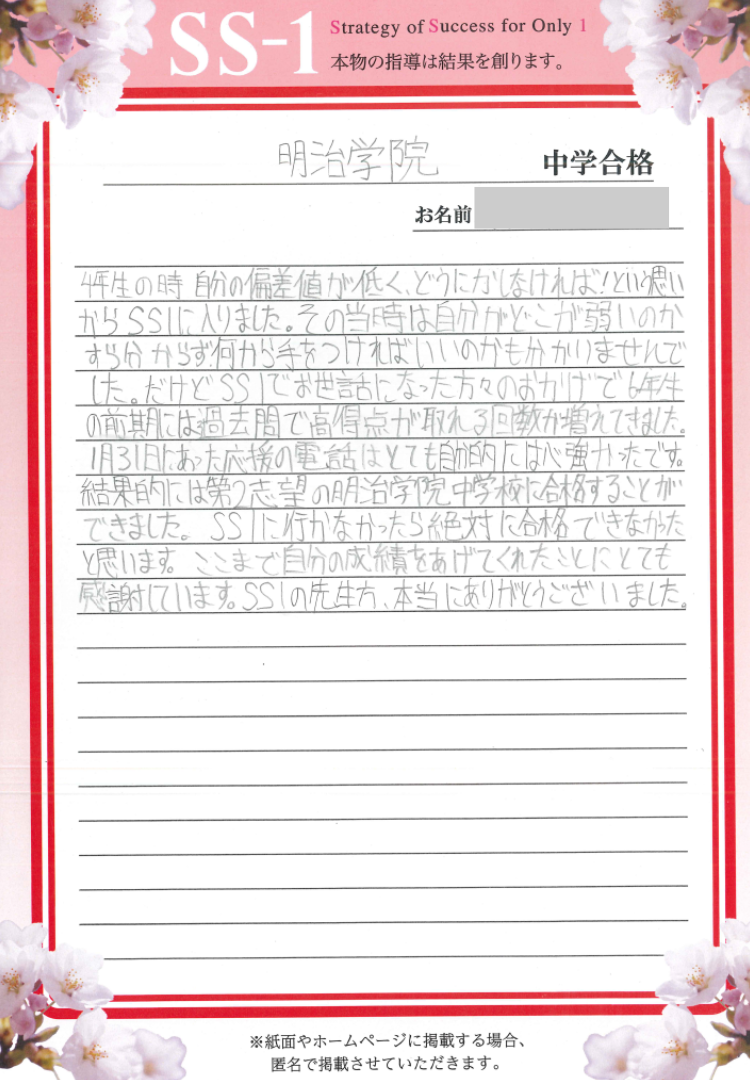 SS-1
Strategy of Success for Only 1
本物の指導は結果を創ります。
明治学院 中学合格
お名前
4年生の時 自分の偏差値が低く、どうにかしなければ!という思い
からSS1に入りました。その当時は自分がどこが弱いのか
すら分からず何から手をつければいいのかも分かりませんで
した。だけどSS1でお世話になった方々のおかげで6年生
の前期には過去問で高得点が取れる回数が増えてきました。
1月31日にあった応援の電話はとても自動的には心強かったです。
結果的には第2志望の明治学院中学校に合格することが
できました。 SS1に行かなかったら絶対に合格できなかった
と思います。 ここまで自分の成績をあげてくれたことにとても
感謝しています。SS1の先生方、本当にありがとうございました。
※紙面やホームページに掲載する場合、
匿名で掲載させていただきます。